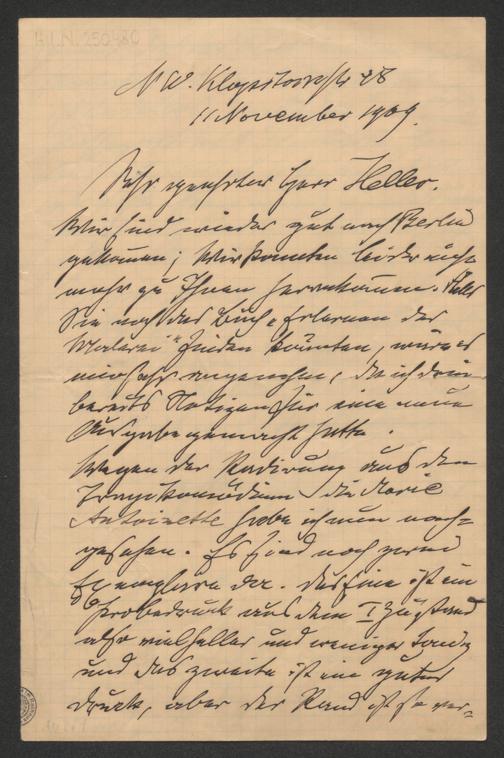 H.I.N. 250480
NW. Klopstockstr 48
11 November 1909.
Sehr geehrter Herr Heller.
Wir sind wieder gut nach Berlin
gekommen; wir konnten leider nicht
mehr zu Ihnen herankommen. Falls
Sie noch das Buch "Erlernen der
Malerei" finden könnten, wäre es
mir sehr angenehm, da ich darin
bereits Notizen für eine neue
Ausgabe gemacht hatte.
Wegen der Radirung aus den
Tragikomödien die Marie
Antoinette habe ich nun nach=
gesehen. Es sind noch zwei
Exemplare da. Das Eine ist ein
Probedruck aus dem I Zustand
also viel heller und weniger
und das zweite ist ein guter
Druck, aber der Rand ist so ver=